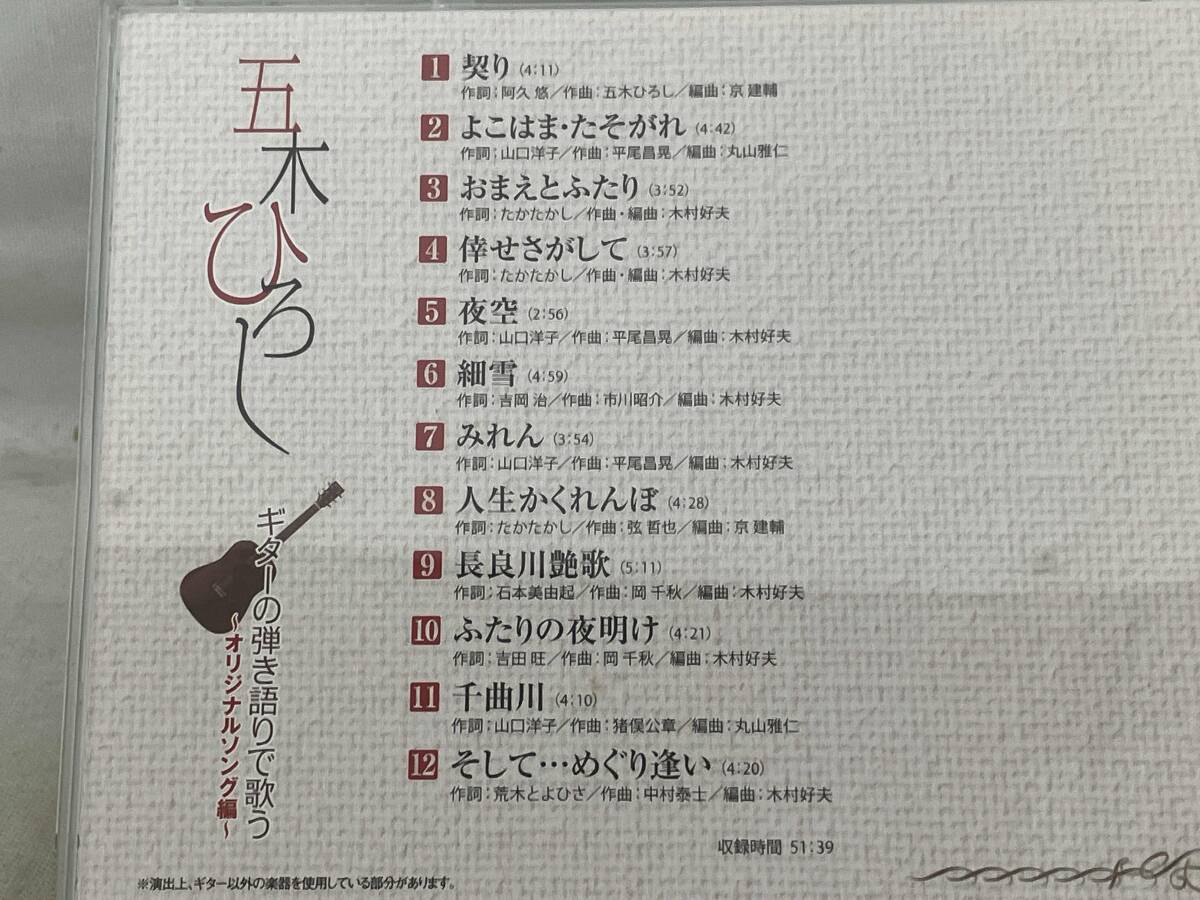 五木ひろし
ギターの弾き語りで歌う
～オリジナルソング編～
1 契り (4:11)
作詞:阿久 悠／作曲:五木ひろし／編曲:京 建輔
2 よこはま・たそがれ (4:42)
作詞:山口洋子／作曲:平尾昌晃／編曲:丸山雅仁
3 おまえとふたり (3:52)
作詞:たかたかし／作曲・編曲:木村好夫
4 倖せさがして (3:57)
作詞:たかたかし／作曲・編曲:木村好夫
5 夜空 (2:56)
作詞:山口洋子／作曲:平尾昌晃／編曲:木村好夫
6 細雪 (4:59)
作詞:吉岡 治／作曲:市川昭介／編曲:木村好夫
7 みれん (3:54)
作詞:山口洋子／作曲:平尾昌晃／編曲:木村好夫
8 人生かくれんぼ (4:28)
作詞:たかたかし／作曲:弦 哲也／編曲:京 建輔
9 長良川艶歌 (5:11)
作詞:石本美由起／作曲:岡 千秋／編曲:木村好夫
10 ふたりの夜明け (4:21)
作詞:吉田 旺／作曲:岡 千秋／編曲:木村好夫
11 千曲川 (4:10)
作詞:山口洋子／作曲:猪俣公章／編曲:丸山雅仁
12 そして…めぐり逢い (4:20)
作詞:荒木とよひさ／作曲:中村泰士／編曲:木村好夫
収録時間 51:39
※演出上、ギター以外の楽器を使用している部分があります。